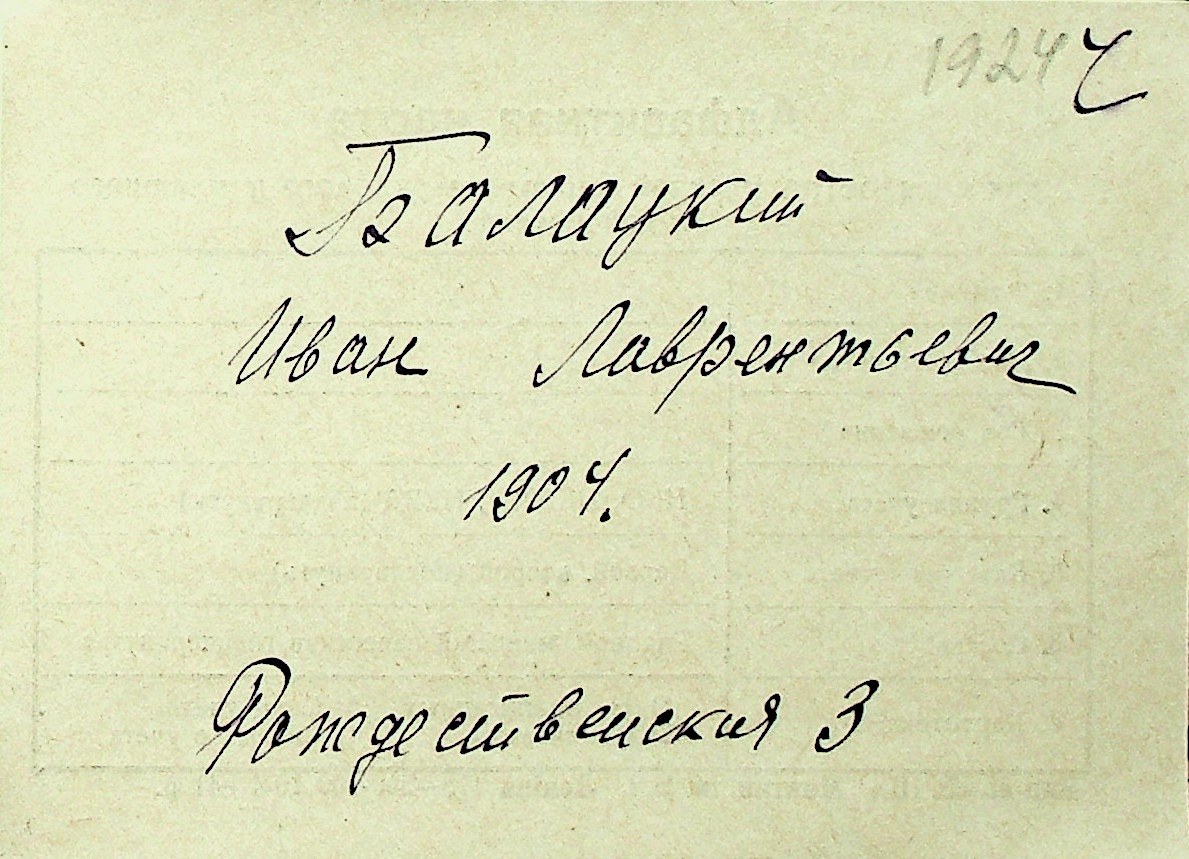 1924 Ч
Балацкий
Иван Лаврентьевич
1904.
Рождественская 3